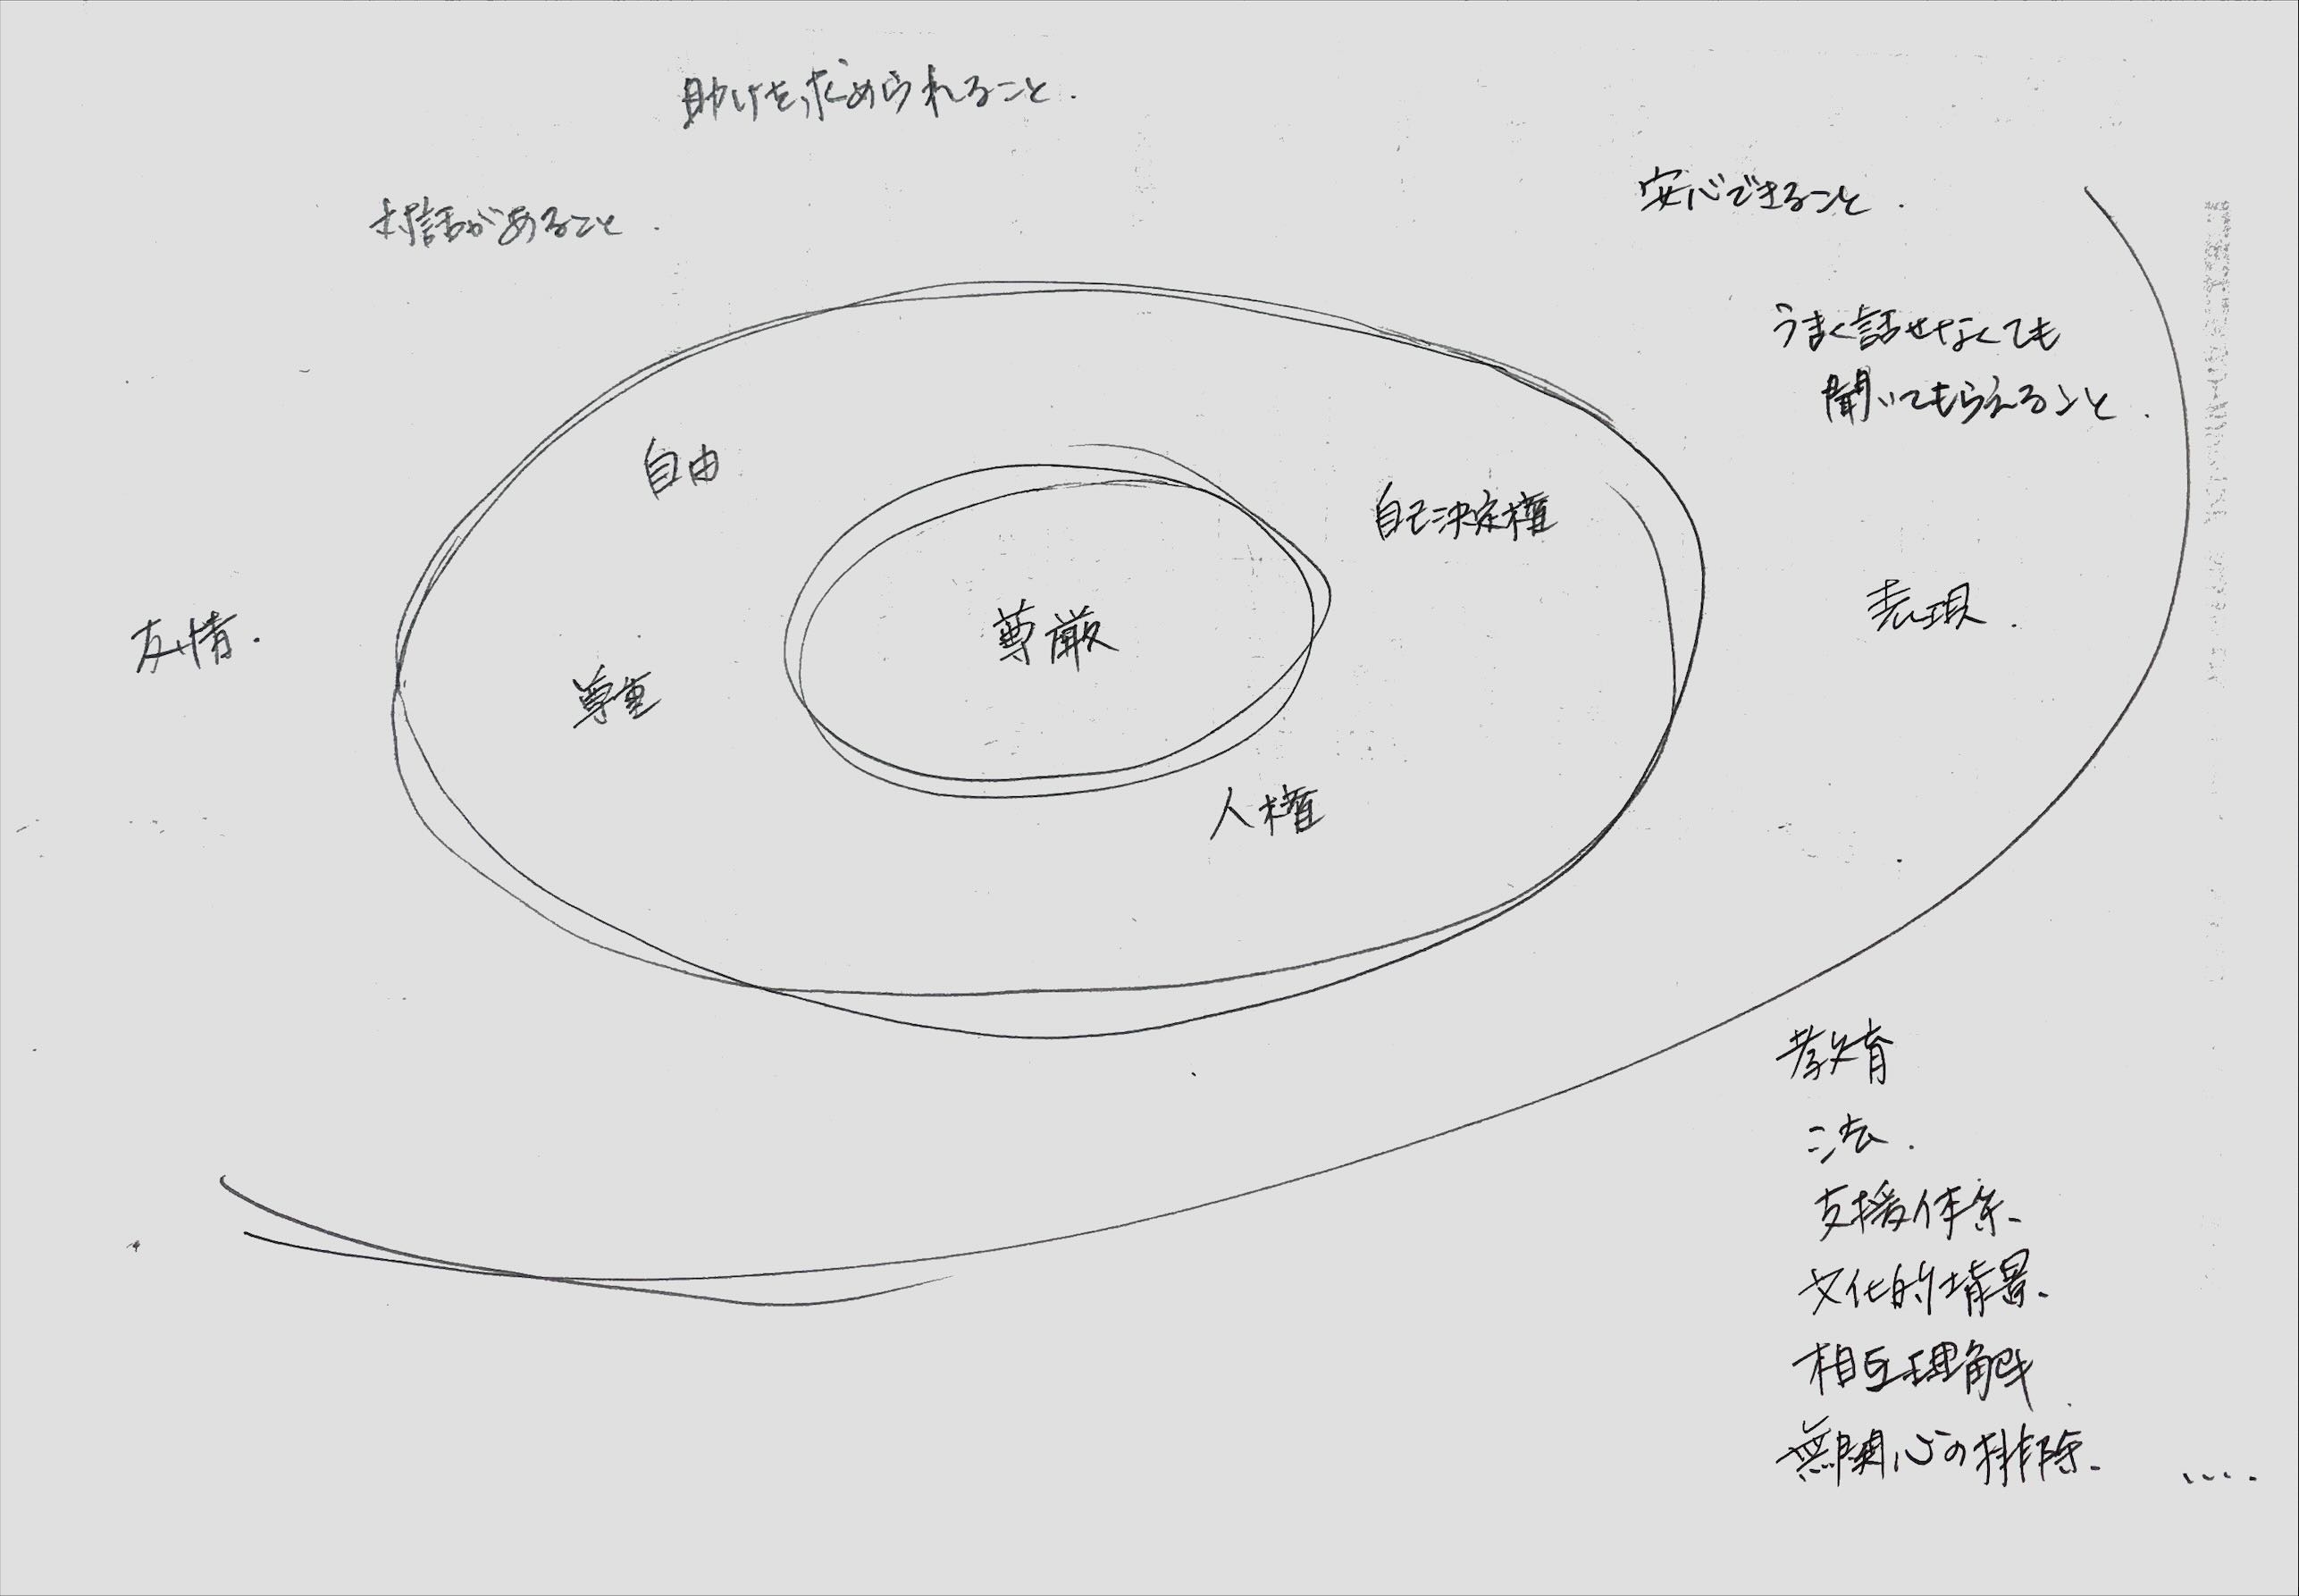 助けを求められること.
対話があること.
安心できること.
うまく話せなくても
聞いてもらえること.
自由
自己決定権
友情.
尊厳
表現.
尊重
人権
教育
法.
支援体系、
文化的背景、
相互理解
無関心の排除、 ....